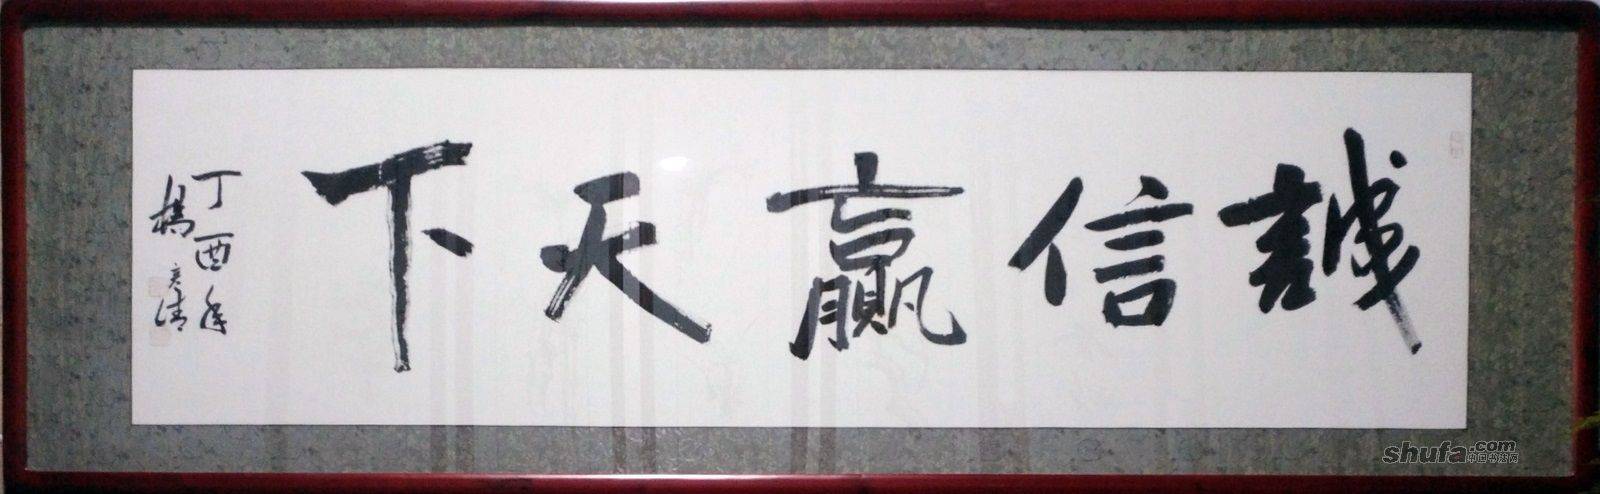 誠信贏天下
丁酉年
楊彦清
shufa.com
中国书法网